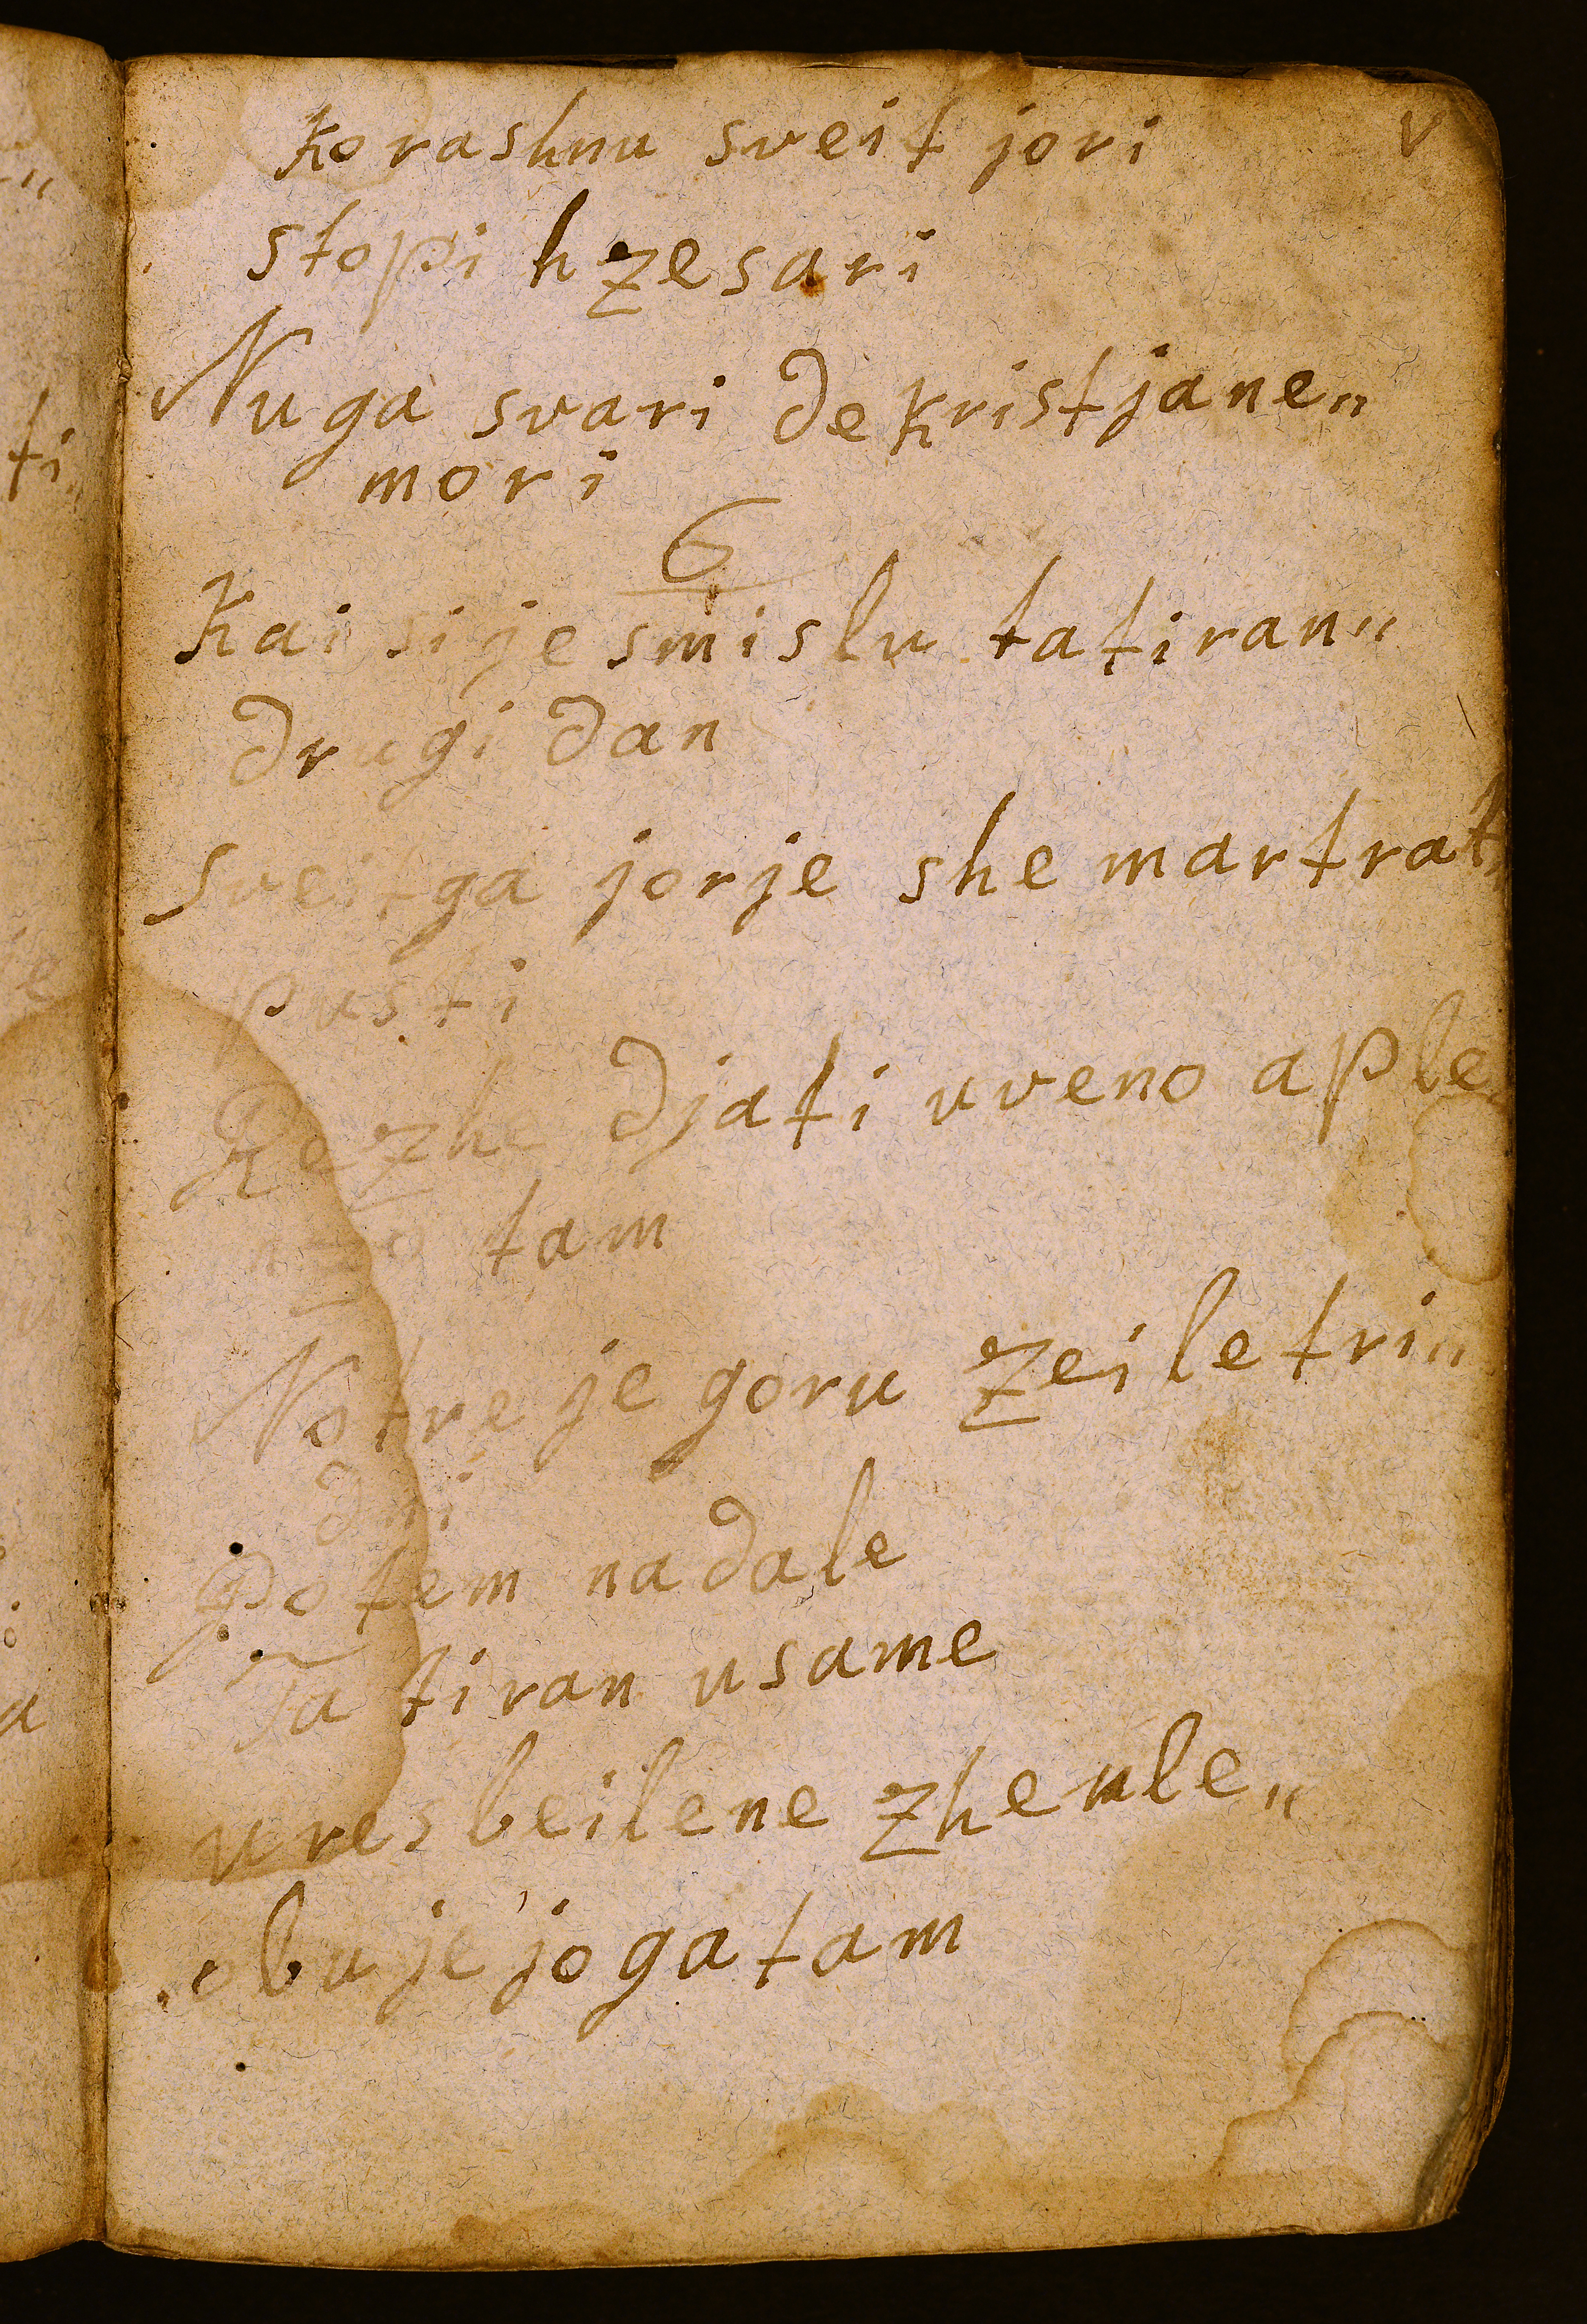 v
korashnu sveit jori
stopi h zesari
Nuga svari de kristjane„
mori
6
Kai si je smislu ta tiran„
drugi dan
Sveitga jorje she martrat„
pusti
Rezhe djati uveno aple„
tam
Notre je goru zeile tri„
dni
Potem nadale
Ta tiran usame
ures beilene zheule„
obuje joga tam